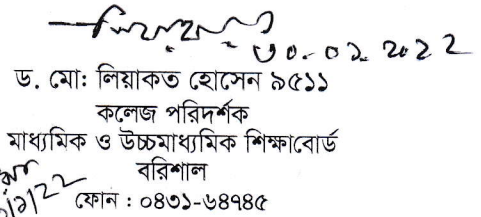 ৩০.০১.২০২২
ড. মো: লিয়াকত হোসেন ৯৫১১
কলেজ পরিদর্শক
মাধ্যমিক ও উচ্চমাধ্যমিক শিক্ষাবোর্ড
বরিশাল
ফোন : ০৪৩১-৬৪৭৪৫